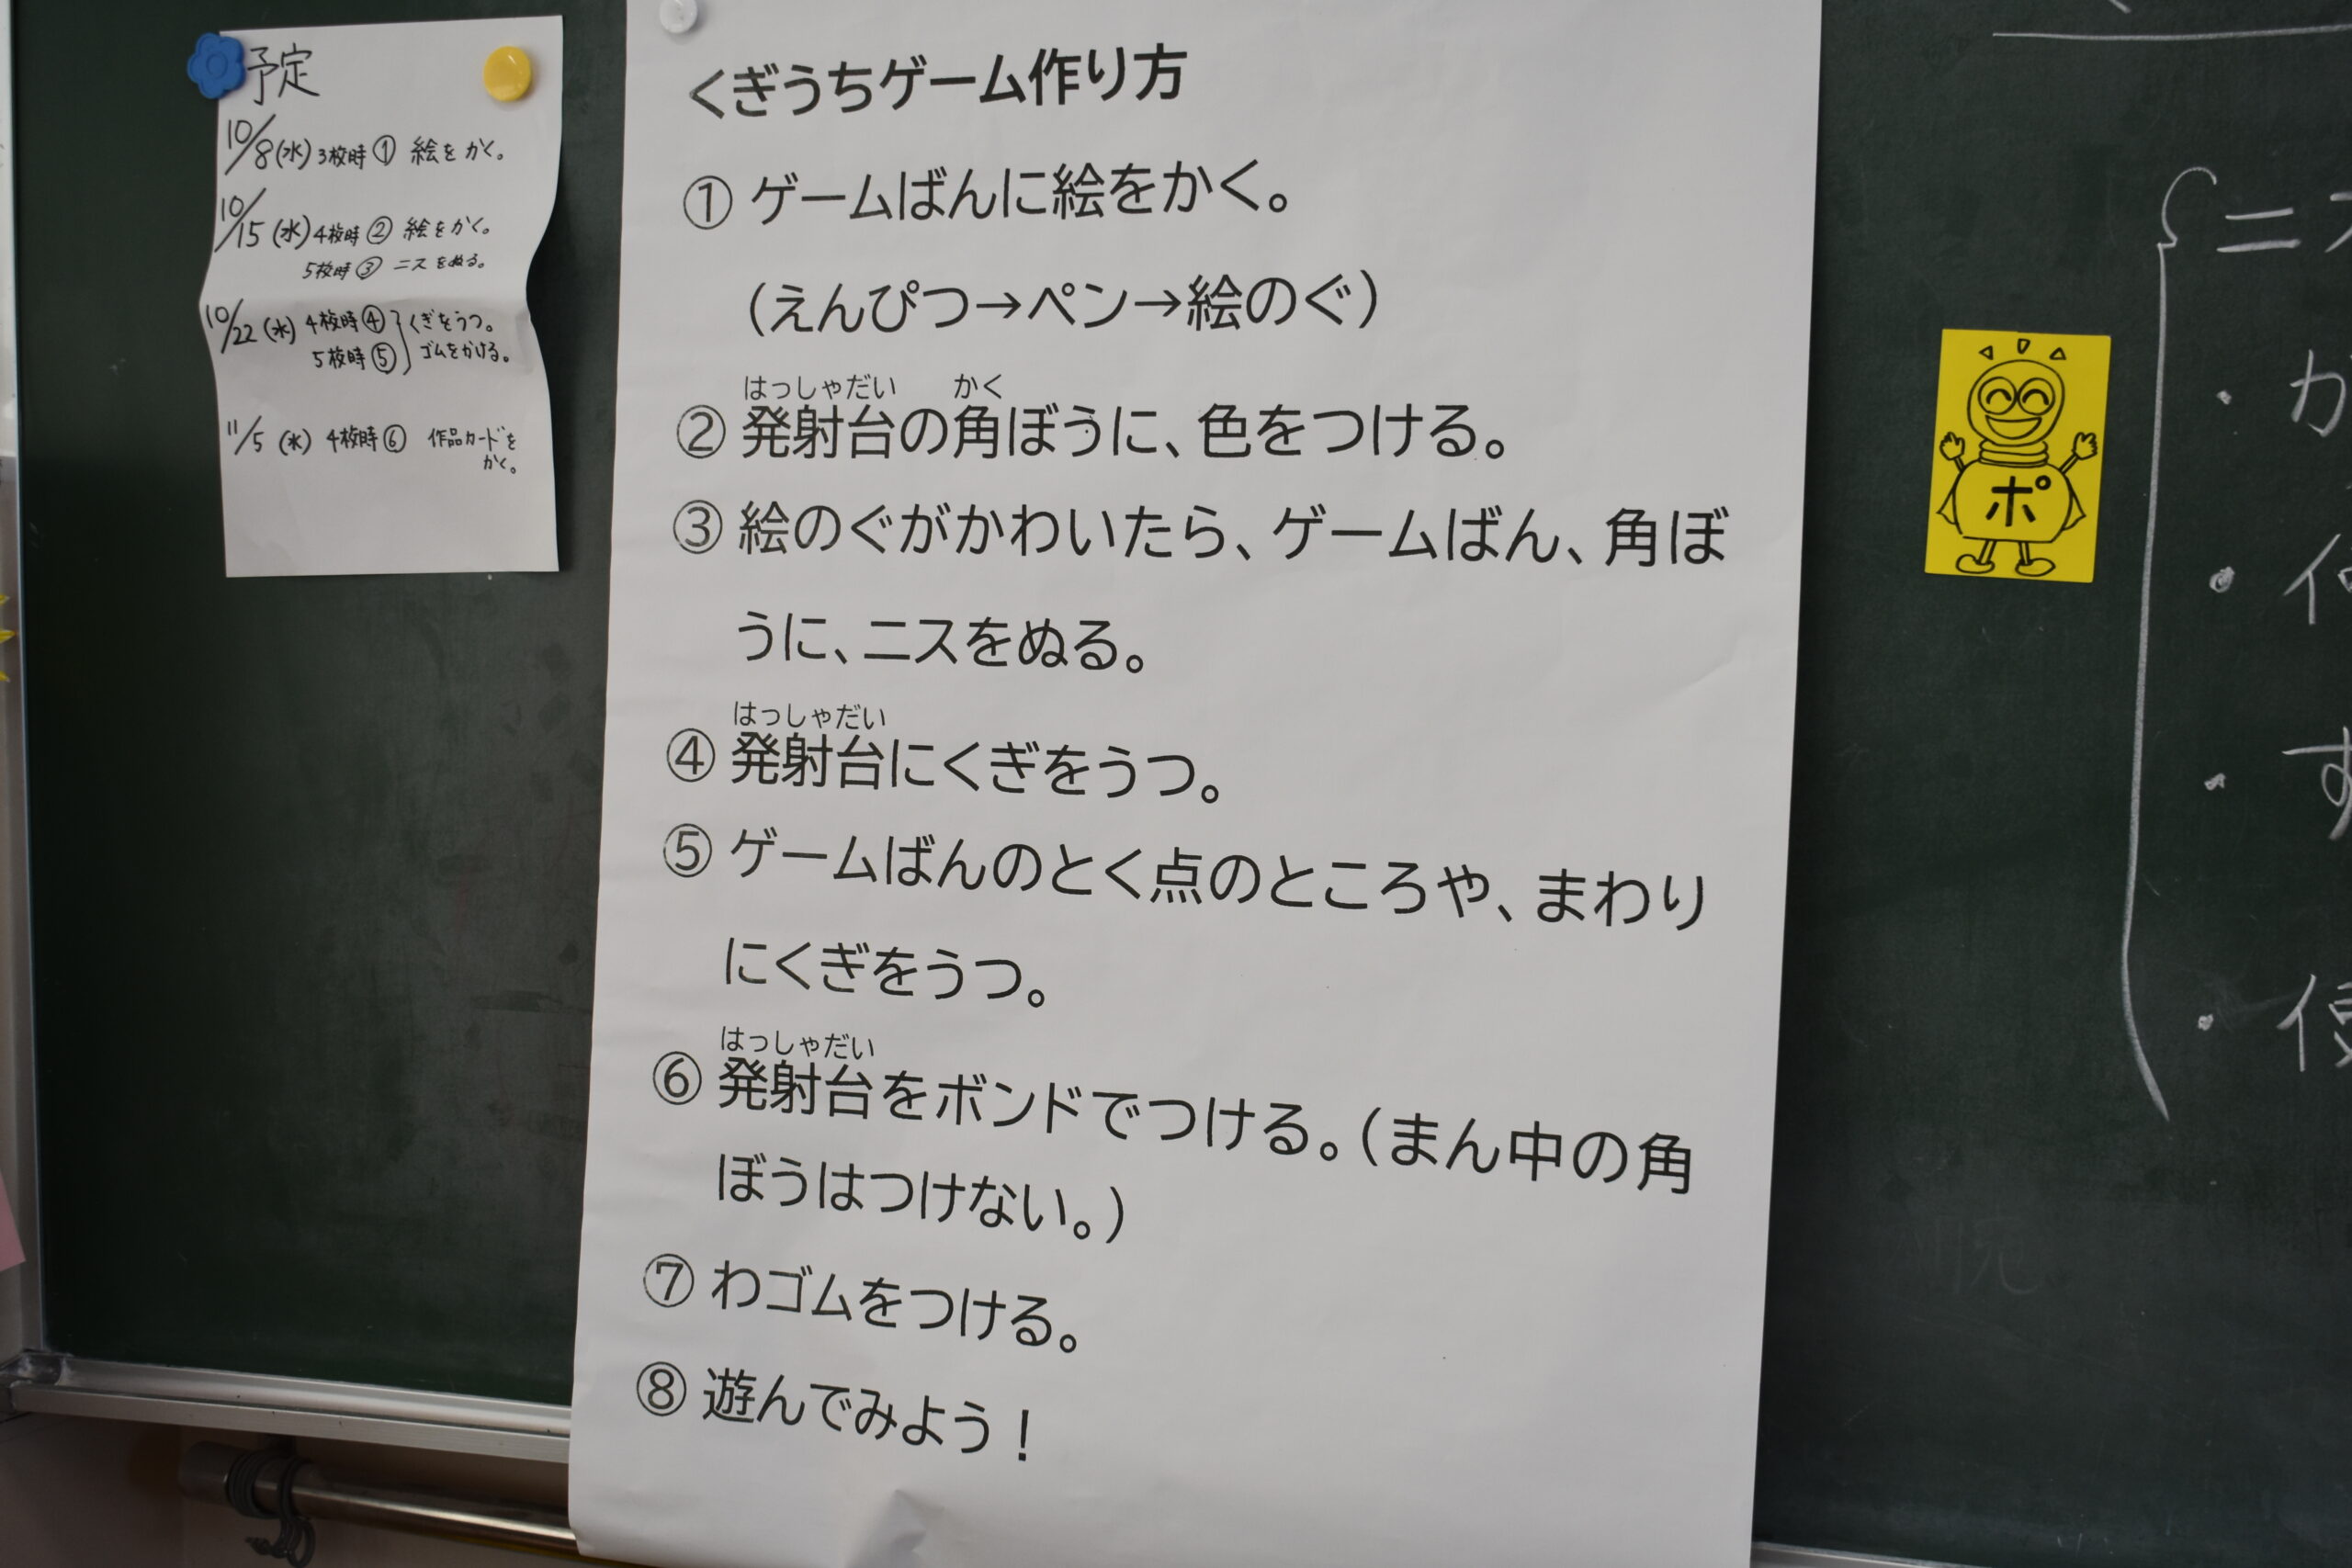 予定
10/8(水) 3校時① 絵をかく。
10/15(水) 4校時② 絵をかく。
5校時③ ニスをぬる。
10/22(水) 4校時④ くぎをうつ。
5校時⑤ ゴムをかける。
11/5(水) 4校時⑥ 作品カードを
かく。
くぎうちゲーム作り方
① ゲームばんに絵をかく。
(えんぴつ→ペン→絵のぐ)
はっしゃだい かく
② 発射台の角ぼうに、色をつける。
③ 絵のぐがかわいたら、ゲームばん、角ぼ
うに、ニスをぬる。
はっしゃだい
④ 発射台にくぎをうつ。
⑤ ゲームばんのとく点のところや、まわり
にくぎをうつ。
はっしゃだい
⑥ 発射台をボンドでつける。(まん中の角
ぼうはつけない。)
⑦ わゴムをつける。
⑧ 遊んでみよう!
ポ
・か
・
・す
・使